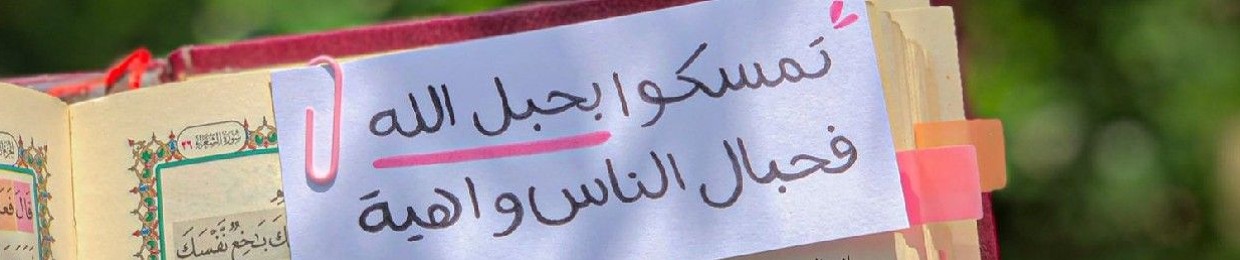 تمسكوا بحبل الله
فحبال الناس واهية
سورة الشعراء ٢٦
بَٰخِعٌ نَّفْسَكَ
قَالَ